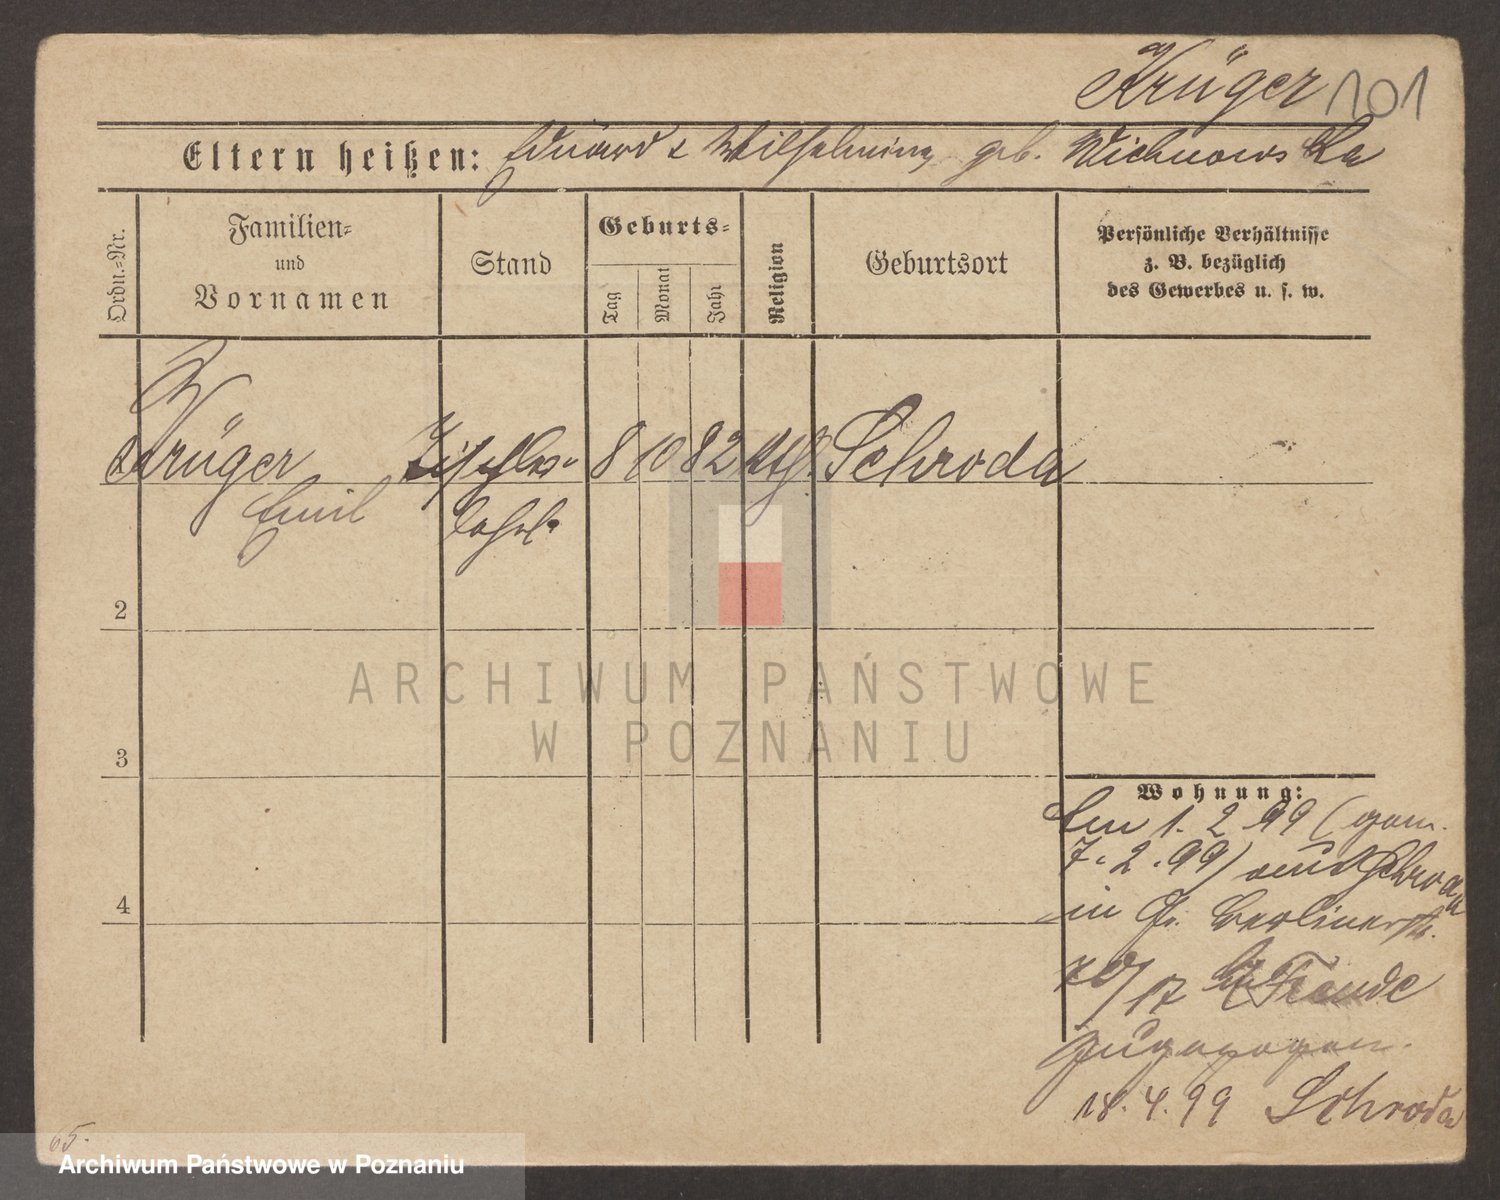 Krüger 101
Eltern heißen: Eduard & Wilhelmine geb. Wichnowska
Ordn.-Nr.
Familien-
und
Vornamen
Stand
Geburts-
Tag
Monat
Jahr
Religion
Geburtsort
Persönliche Verhältnisse
z. B. bezüglich
des Gewerbes u. s. w.
Krüger Tischler- 8 10 82 kth. Schroda
Emil lehrl.
2
ARCHIWUM PAŃSTWOWE
W POZNANIU
3
4
Wohnung:
Am 1. 2 99 (gem.
7. 2. 99) aus Schroda
in Gr. Berlinerstr.
/17 bei
zugezogen.
18. 4. 99 Schroda
65.
Archiwum Państwowe w Poznaniu